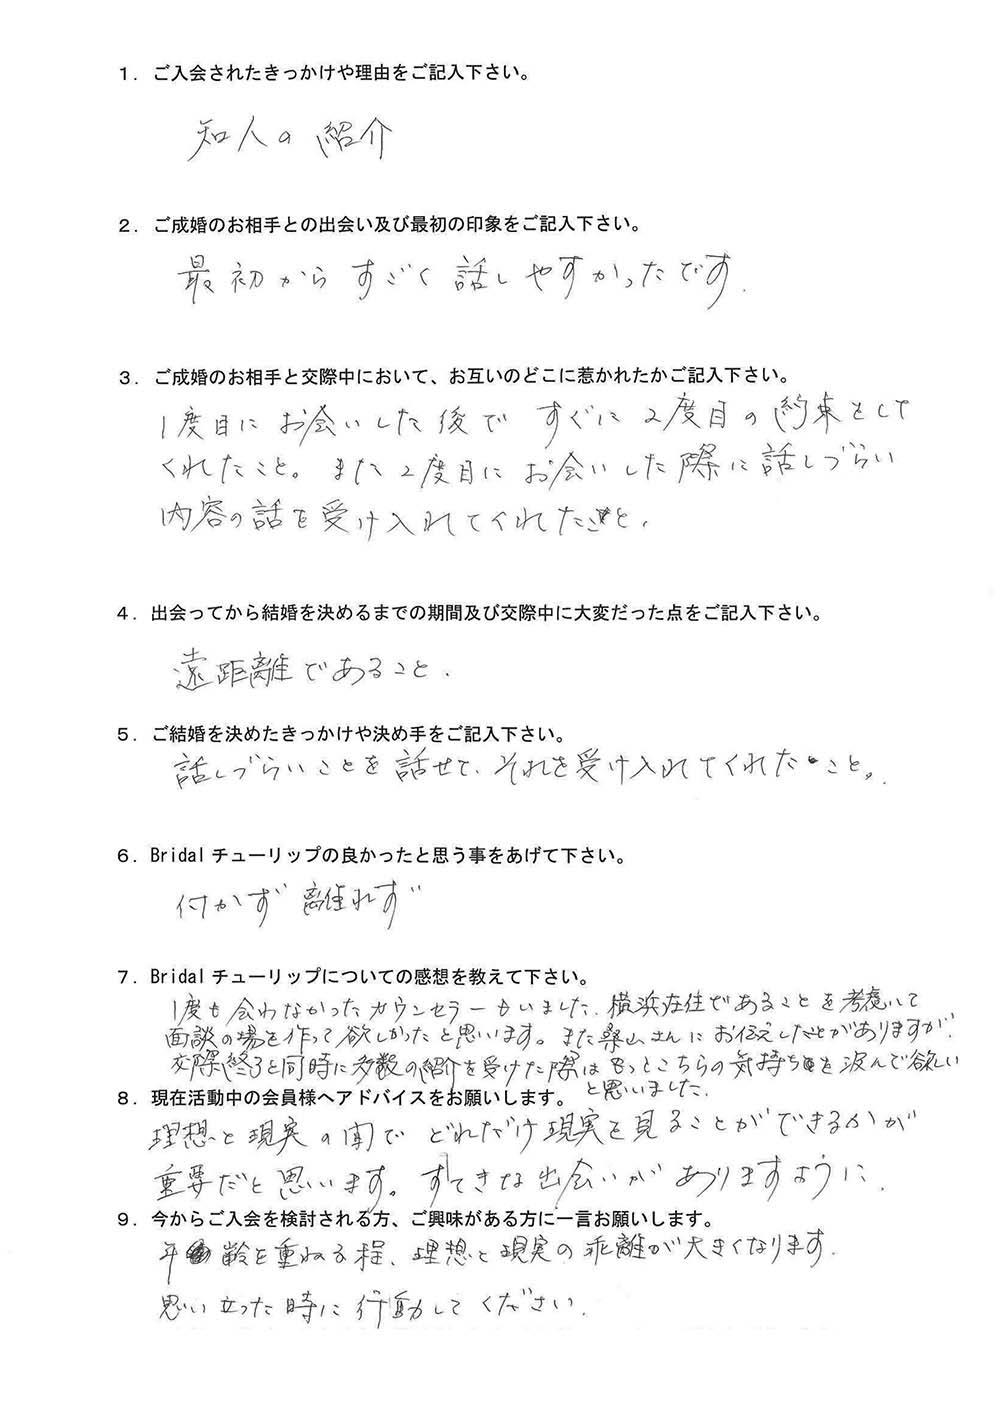 １．ご入会されたきっかけや理由をご記入下さい。
知人の紹介
２．ご成婚のお相手との出会い及び最初の印象をご記入下さい。
最初からすごく話しやすかったです.
３．ご成婚のお相手と交際中において、お互いのどこに惹かれたかご記入下さい。
1度目にお会いした後ですぐに2度目の約束をして
くれたこと。また2度目にお会いした際に話しづらい
内容の話を受け入れてくれたこと.
４．出会ってから結婚を決めるまでの期間及び交際中に大変だった点をご記入下さい。
遠距離であること.
５．ご結婚を決めたきっかけや決め手をご記入下さい。
話しづらいことを話せて、それを受け入れてくれたこと。
６．Bridalチューリップの良かったと思う事をあげて下さい。
付かず離れず
７．Bridalチューリップについての感想を教えて下さい。
1度も会わなかったカウンセラーもいました、横浜在住であることを考慮して
面談の場を作って欲しかったと思います。また桑山さんにお伝えしたことがありますが、
交際終了と同時に多数の紹介を受けた際はもっとこちらの気持ちを汲んで欲しい
と思いました.
８．現在活動中の会員様へアドバイスをお願いします。
理想と現実の間でどれだけ現実を見ることができるかが
重要だと思います。すてきな出会いがありますように.
９．今からご入会を検討される方、ご興味がある方に一言お願いします。
年齢を重ねる程、理想と現実の乖離が大きくなります.
思い立った時に行動してください.